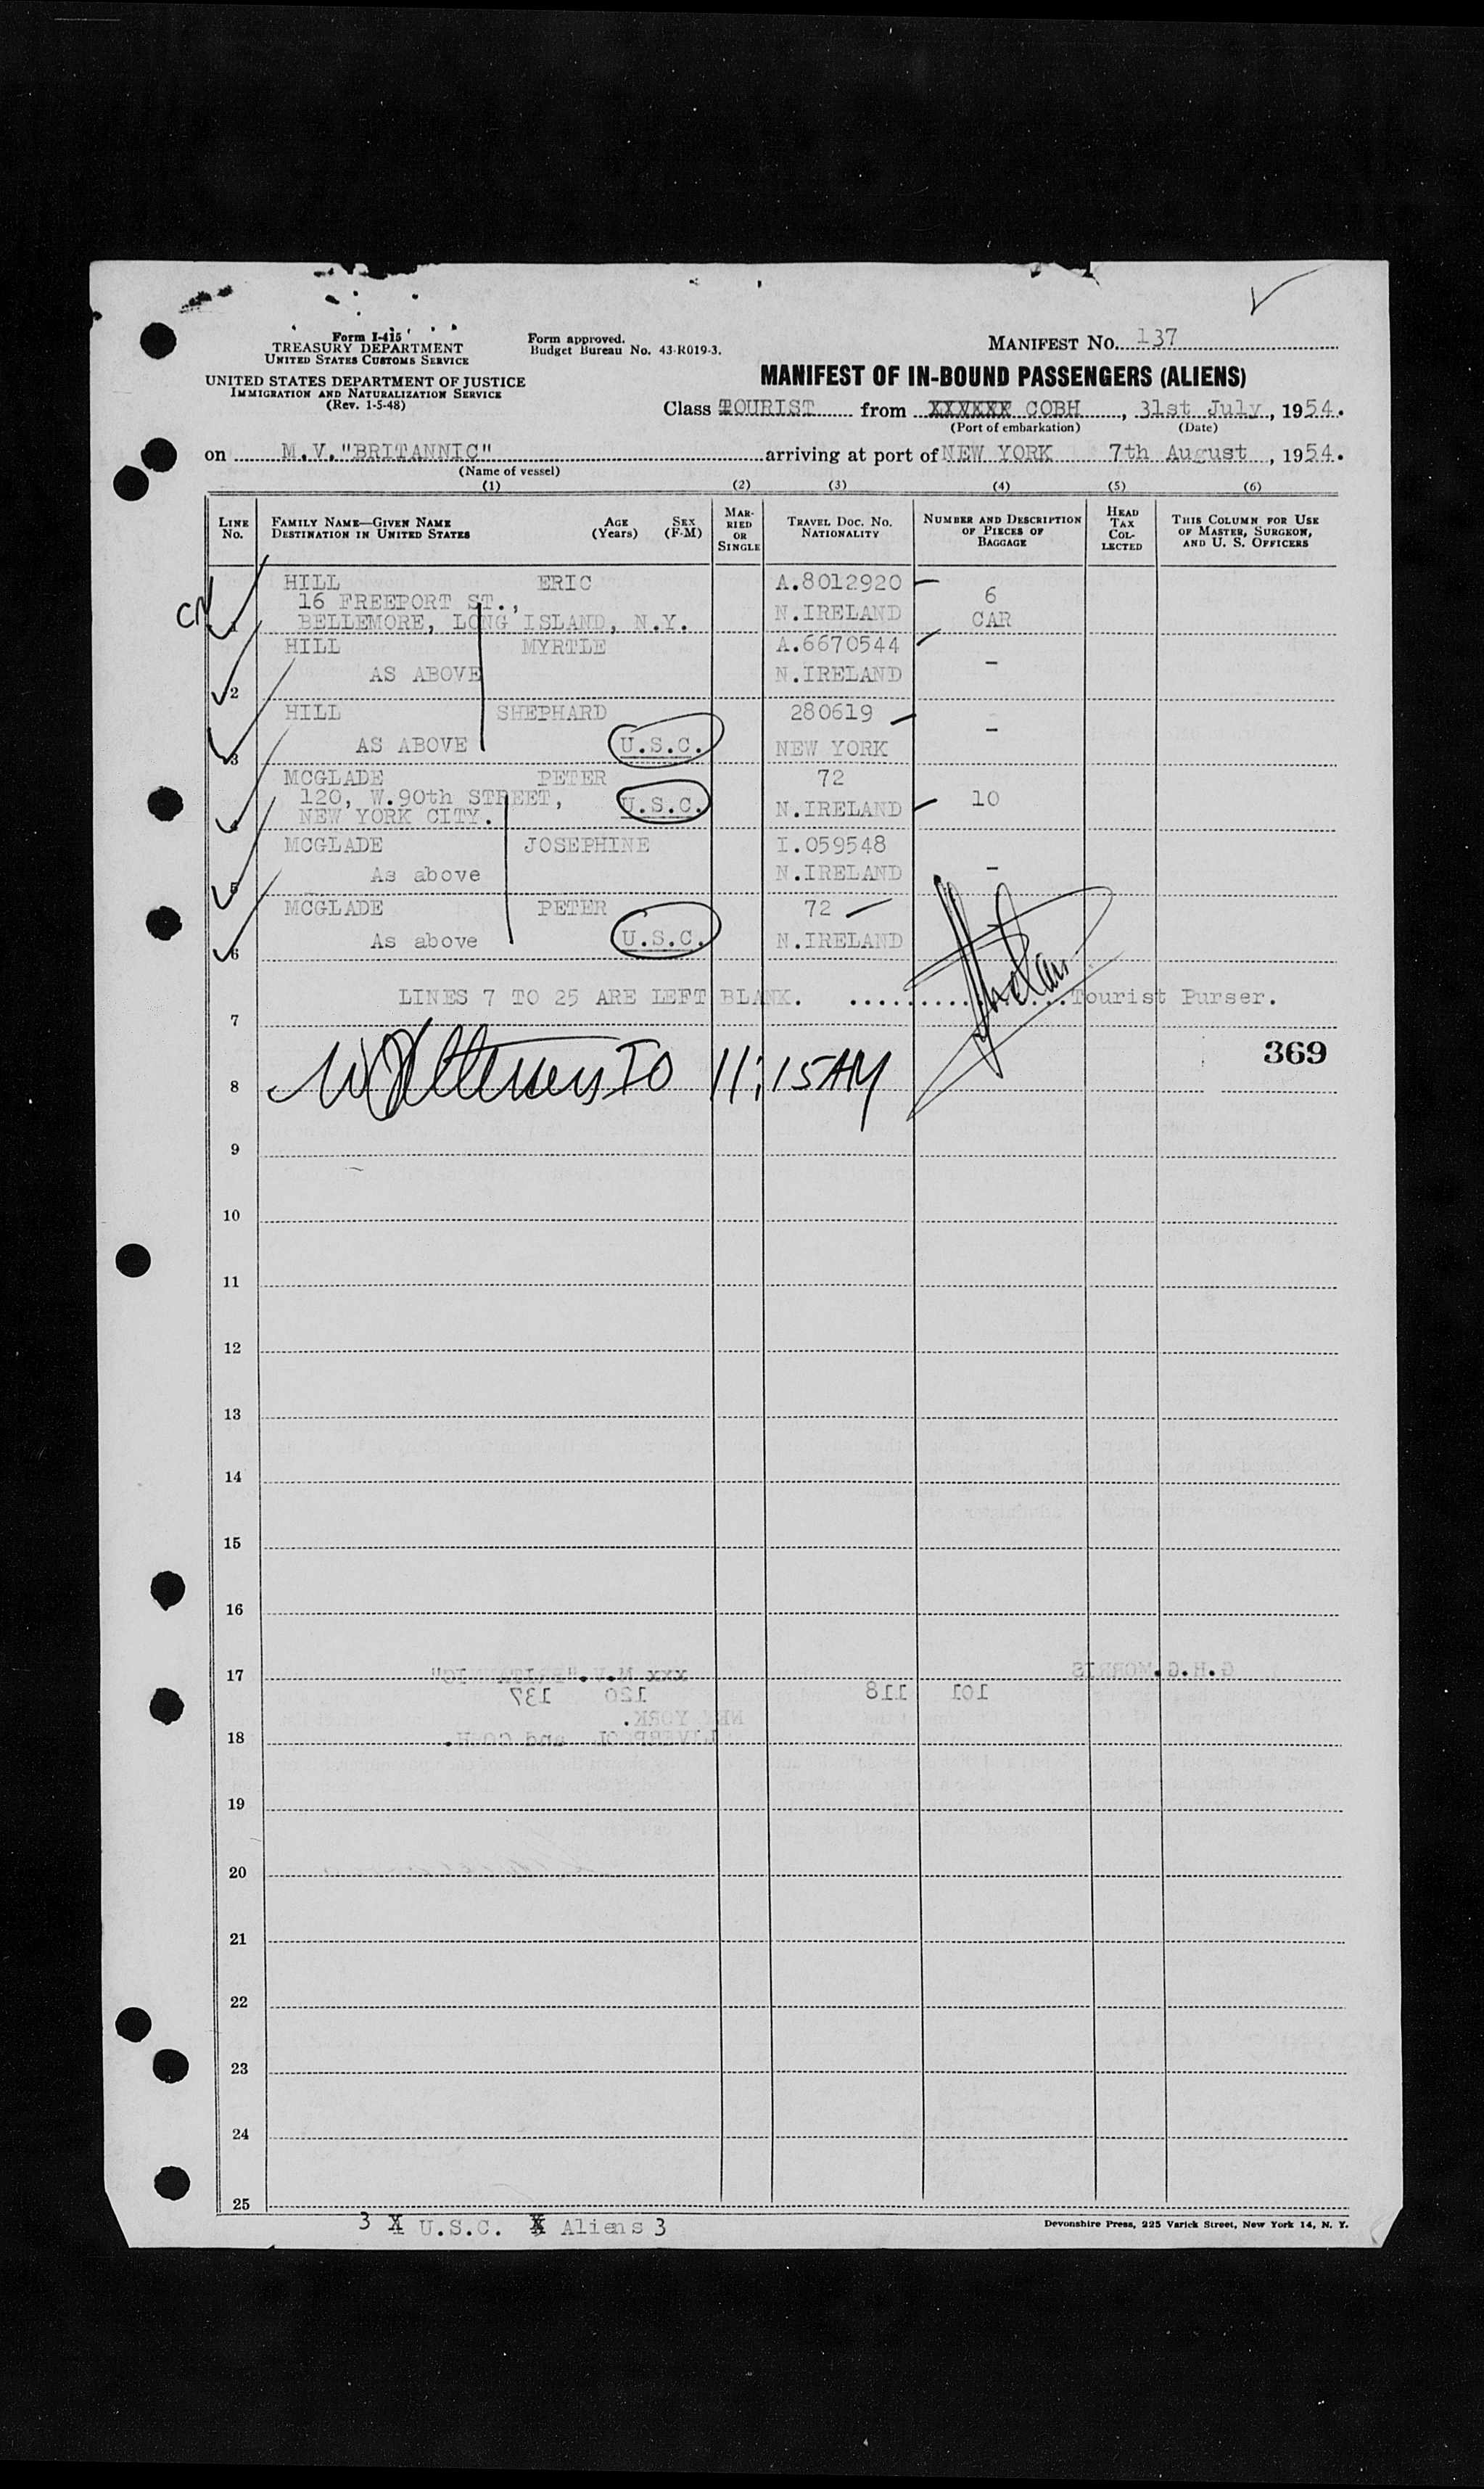 Form I-415
TREASURY DEPARTMENT
UNITED STATES CUSTOMS SERVICE
UNITED STATES DEPARTMENT OF JUSTICE
IMMIGRATION AND NATURALIZATION SERVICE
(Rev. 1-5-48)
Form approved.
Budget Bureau No. 43-R019-3.
MANIFEST NO. 137
MANIFEST OF IN-BOUND PASSENGERS (ALIENS)
Class TOURIST from XXXXXX COBH, 31st July, 1954.
(Port of embarkation) (Date)
on M.V."BRITANNIC" arriving at port of NEW YORK 7th August, 1954.
(Name of vessel)
(1) (2) (3) (4) (5) (6)
LINE No. FAMILY NAME—GIVEN NAME DESTINATION IN UNITED STATES AGE (Years) SEX (F-M) MARRIED OR SINGLE TRAVEL DOC. NO. NATIONALITY NUMBER AND DESCRIPTION OF PIECES OF BAGGAGE HEAD TAX COLLECTED THIS COLUMN FOR USE OF MASTER, SURGEON, AND U. S. OFFICERS
HILL ERIC A.8012920 6
16 FREEPORT ST., N.IRELAND CAR
1 BELLEMORE, LONG ISLAND, N.Y.
HILL MYRTLE A.6670544 -
2 AS ABOVE N.IRELAND
HILL SHEPHARD 280619 -
3 AS ABOVE U.S.C. NEW YORK
MCGLADE PETER 72
120, W.90th STREET, U.S.C. N.IRELAND 10
4 NEW YORK CITY.
MCGLADE JOSEPHINE I.059548
5 As above N.IRELAND -
MCGLADE PETER 72
6 As above U.S.C. N.IRELAND
LINES 7 TO 25 ARE LEFT BLANK. ....................Tourist Purser.
7
369
8 IO 11:15AM
9
10
11
12
13
14
15
16
17
G.H.G.MORRIS xxx M.V."BRITANNIC"
101 118 120 137
NEW YORK.
18
LIVERPOOL and COBH.
19
20
21
22
23
24
25
3 X U.S.C. X Aliens 3
Devonshire Press, 225 Varick Street, New York 14, N. Y.